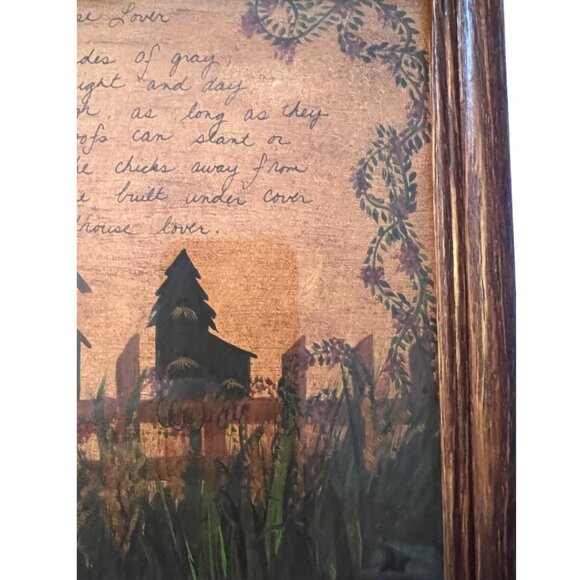 se Lover
des of gray,
ight and day
gh, as long as they
oofs can slant or
he chicks away from
e built under cover
dhouse lover.